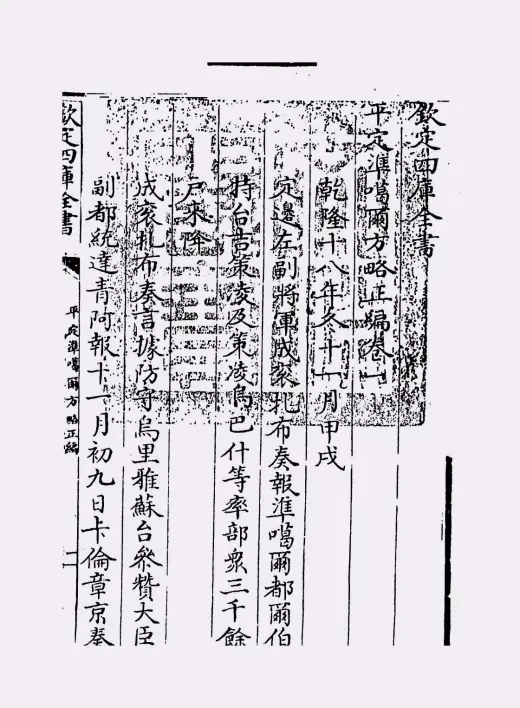 欽定四庫全書
平定準噶爾方略正編卷一
乾隆十八年冬十一月甲戌
定邊左副將軍成衮札布奏報準噶爾都爾伯
特台吉策凌及策凌烏巴什等率部衆三千餘
户來降
成衮札布奏言據防守烏里雅蘇台叅贊大臣
副都統達青阿報十一月初九日卡倫章京奏
欽定四庫全書
平定準噶爾方略正編